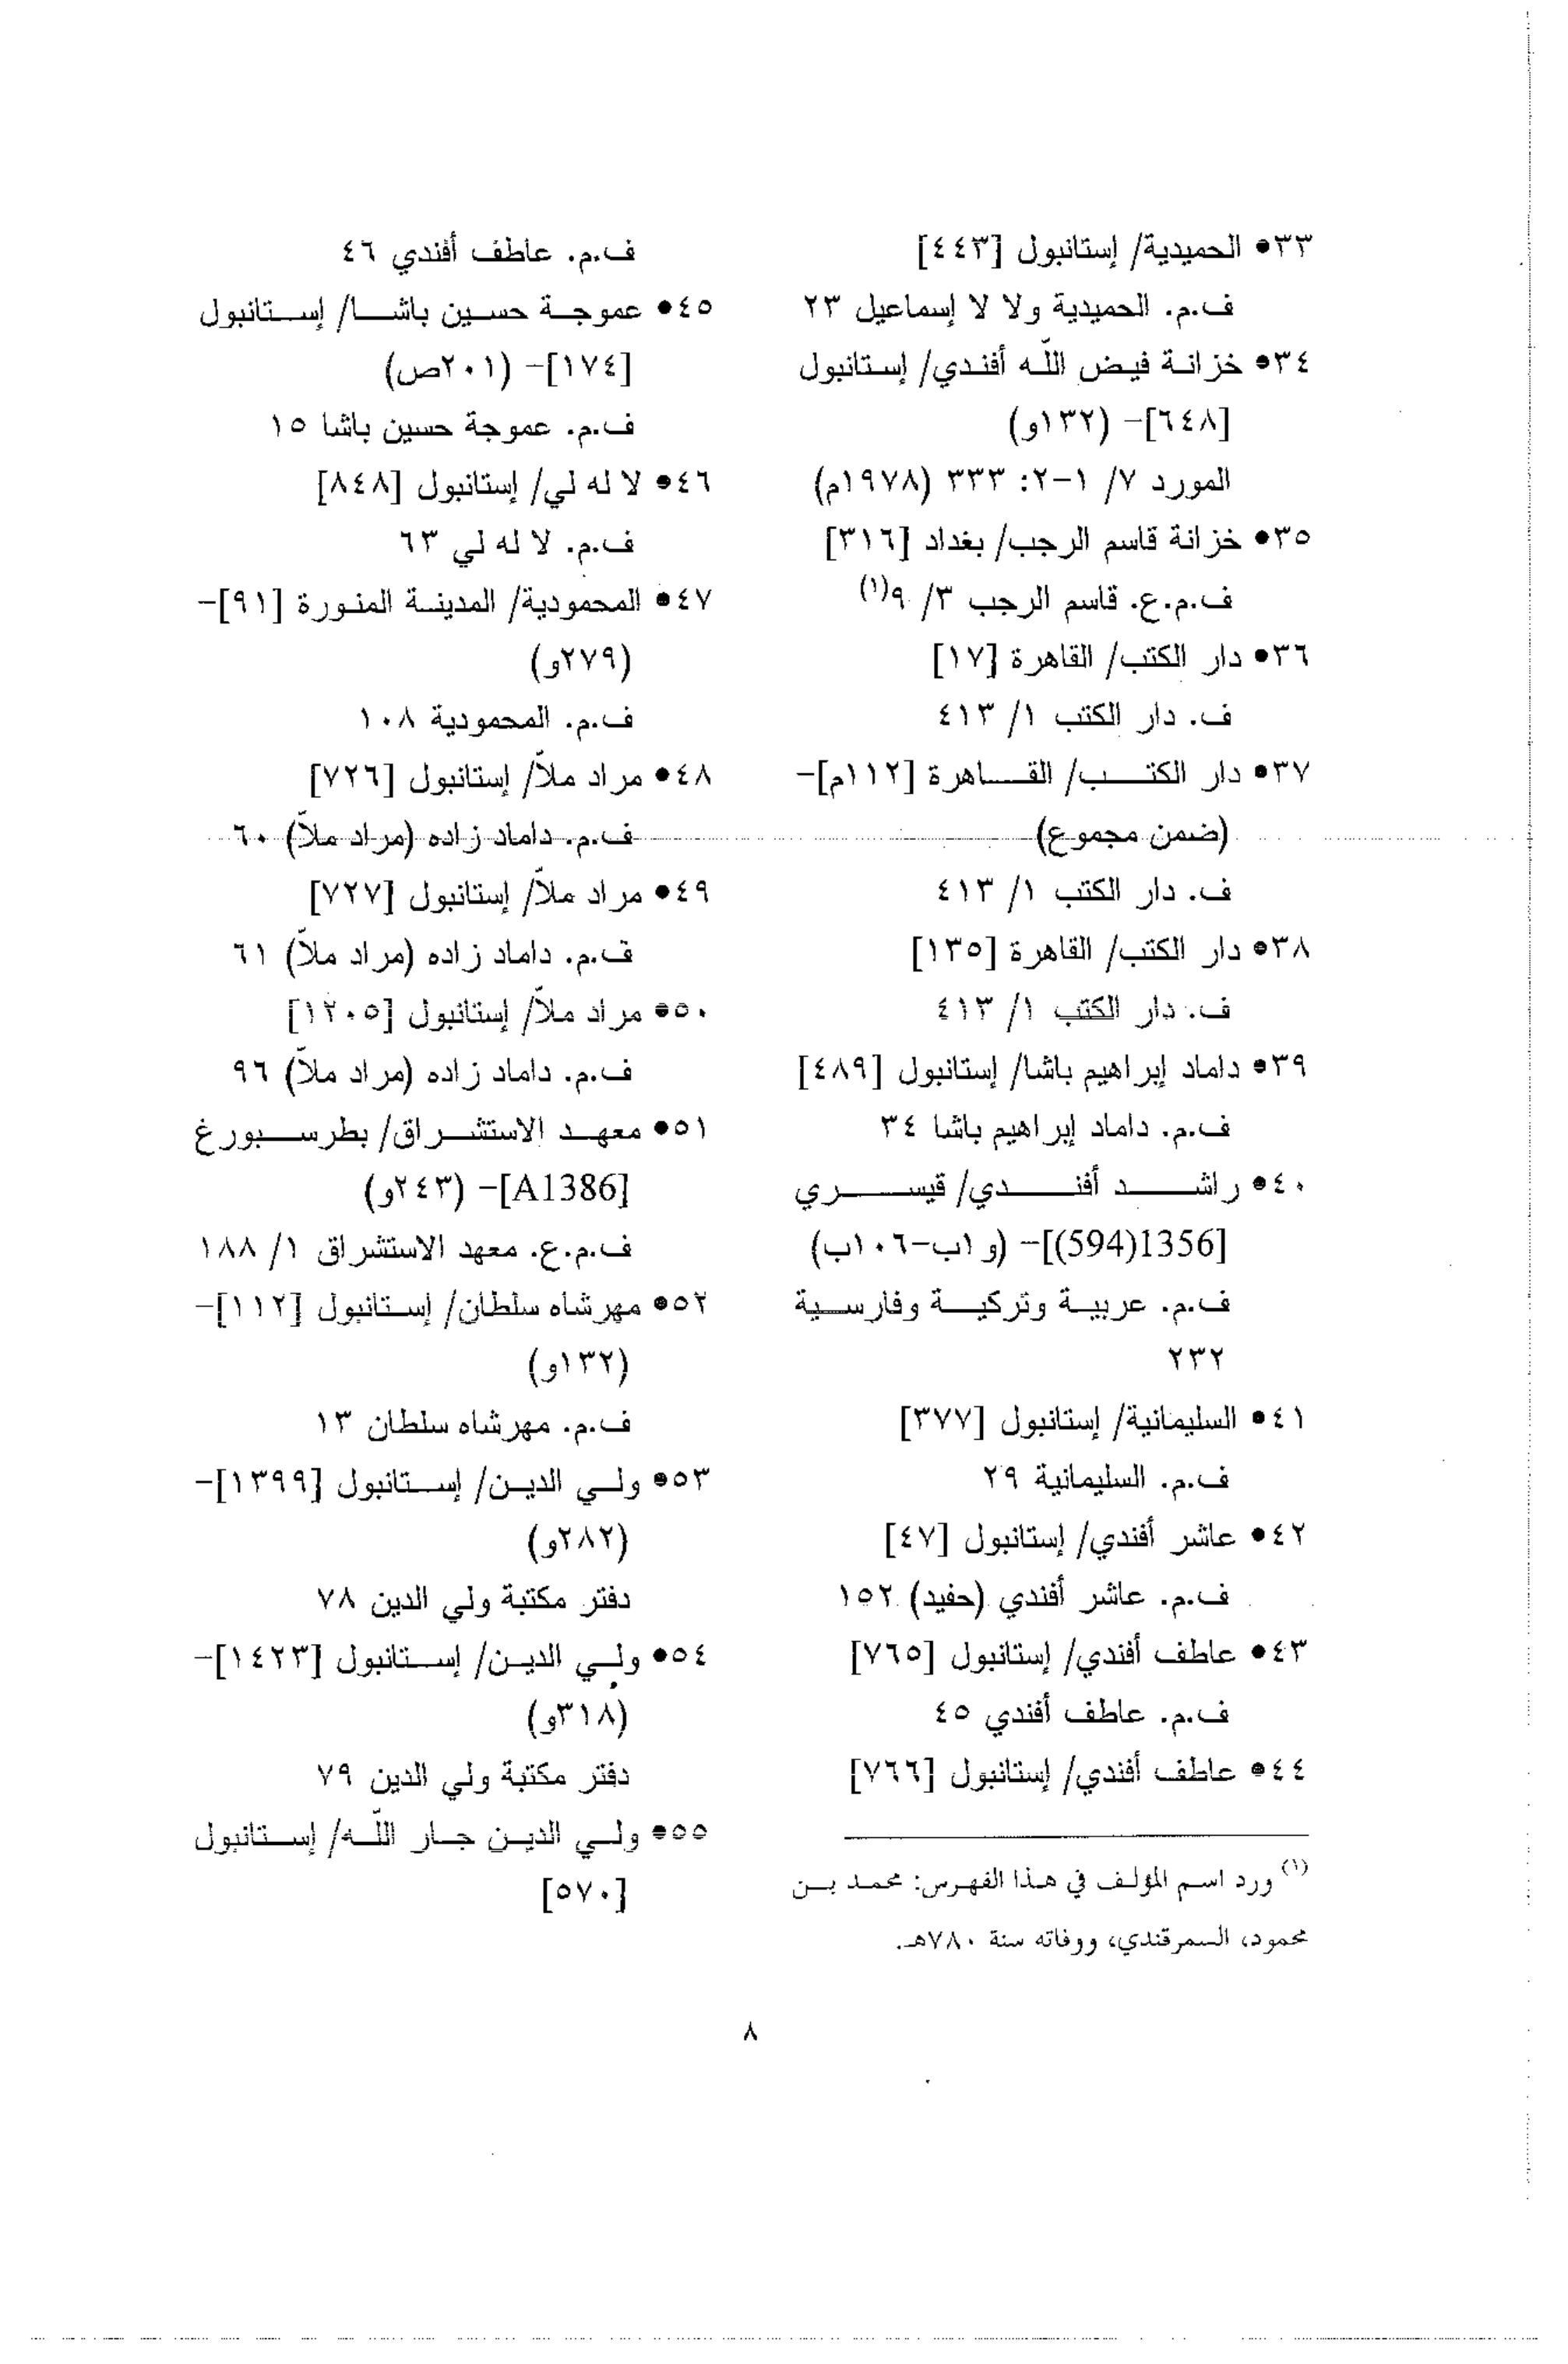 ٣٣• الحميدية/ إستانبول [٤٤٣]
ف.م. الحميدية ولا لا إسماعيل ٢٣
٣٤• خزانة فيض اللّه أفندي/ إستانبول
[٦٤٨]– (١٣٢و)
المورد ٧/ ١–٢: ٣٣٣ (١٩٧٨م)
٣٥• خزانة قاسم الرجب/ بغداد [٣١٦]
ف.م.ع. قاسم الرجب ٣/ ٩(١)
٣٦• دار الكتب/ القاهرة [١٧]
ف. دار الكتب ١/ ٤١٣
٣٧• دار الكتب/ القاهرة [١١٢م]–
(ضمن مجموع)
ف. دار الكتب ١/ ٤١٣
٣٨• دار الكتب/ القاهرة [١٣٥]
ف. دار الكتب ١/ ٤١٣
٣٩• داماد إبراهيم باشا/ إستانبول [٤٨٩]
ف.م. داماد إبراهيم باشا ٣٤
٤٠• راشد أفندي/ قيسري
[1356(594)]– (و١ب–١٠٦ب)
ف.م. عربية وتركية وفارسية
٢٣٢
٤١• السليمانية/ إستانبول [٣٧٧]
ف.م. السليمانية ٢٩
٤٢• عاشر أفندي/ إستانبول [٤٧]
ف.م. عاشر أفندي (حفيد) ١٥٢
٤٣• عاطف أفندي/ إستانبول [٧٦٥]
ف.م. عاطف أفندي ٤٥
٤٤• عاطف أفندي/ إستانبول [٧٦٦]
(١) ورد اسم المؤلف في هذا الفهرس: محمد بن
محمود، السمرقندي، ووفاته سنة ٧٨٠هـ.
ف.م. عاطف أفندي ٤٦
٤٥• عموجة حسين باشا/ إستانبول
[١٧٤]– (٢٠١ص)
ف.م. عموجة حسين باشا ١٥
٤٦• لا له لي/ إستانبول [٨٤٨]
ف.م. لا له لي ٦٣
٤٧• المحمودية/ المدينة المنورة [٩١]–
(٢٧٩و)
ف.م. المحمودية ١٠٨
٤٨• مراد ملاّ/ إستانبول [٧٢٦]
ف.م. داماد زاده (مراد ملاّ) ٦٠
٤٩• مراد ملاّ/ إستانبول [٧٢٧]
ف.م. داماد زاده (مراد ملاّ) ٦١
٥٠• مراد ملاّ/ إستانبول [١٢٠٥]
ف.م. داماد زاده (مراد ملاّ) ٩٦
٥١• معهد الاستشراق/ بطرسبورغ
[A1386]– (٢٤٣و)
ف.م.ع. معهد الاستشراق ١/ ١٨٨
٥٢• مهرشاه سلطان/ إستانبول [١١٢]–
(١٣٢و)
ف.م. مهرشاه سلطان ١٣
٥٣• ولي الدين/ إستانبول [١٣٩٩]–
(٢٨٢و)
دفتر مكتبة ولي الدين ٧٨
٥٤• ولي الدين/ إستانبول [١٤٢٣]–
(٣١٨و)
دفتر مكتبة ولي الدين ٧٩
٥٥• ولي الدين جار اللّه/ إستانبول
[٥٧٠]
٨